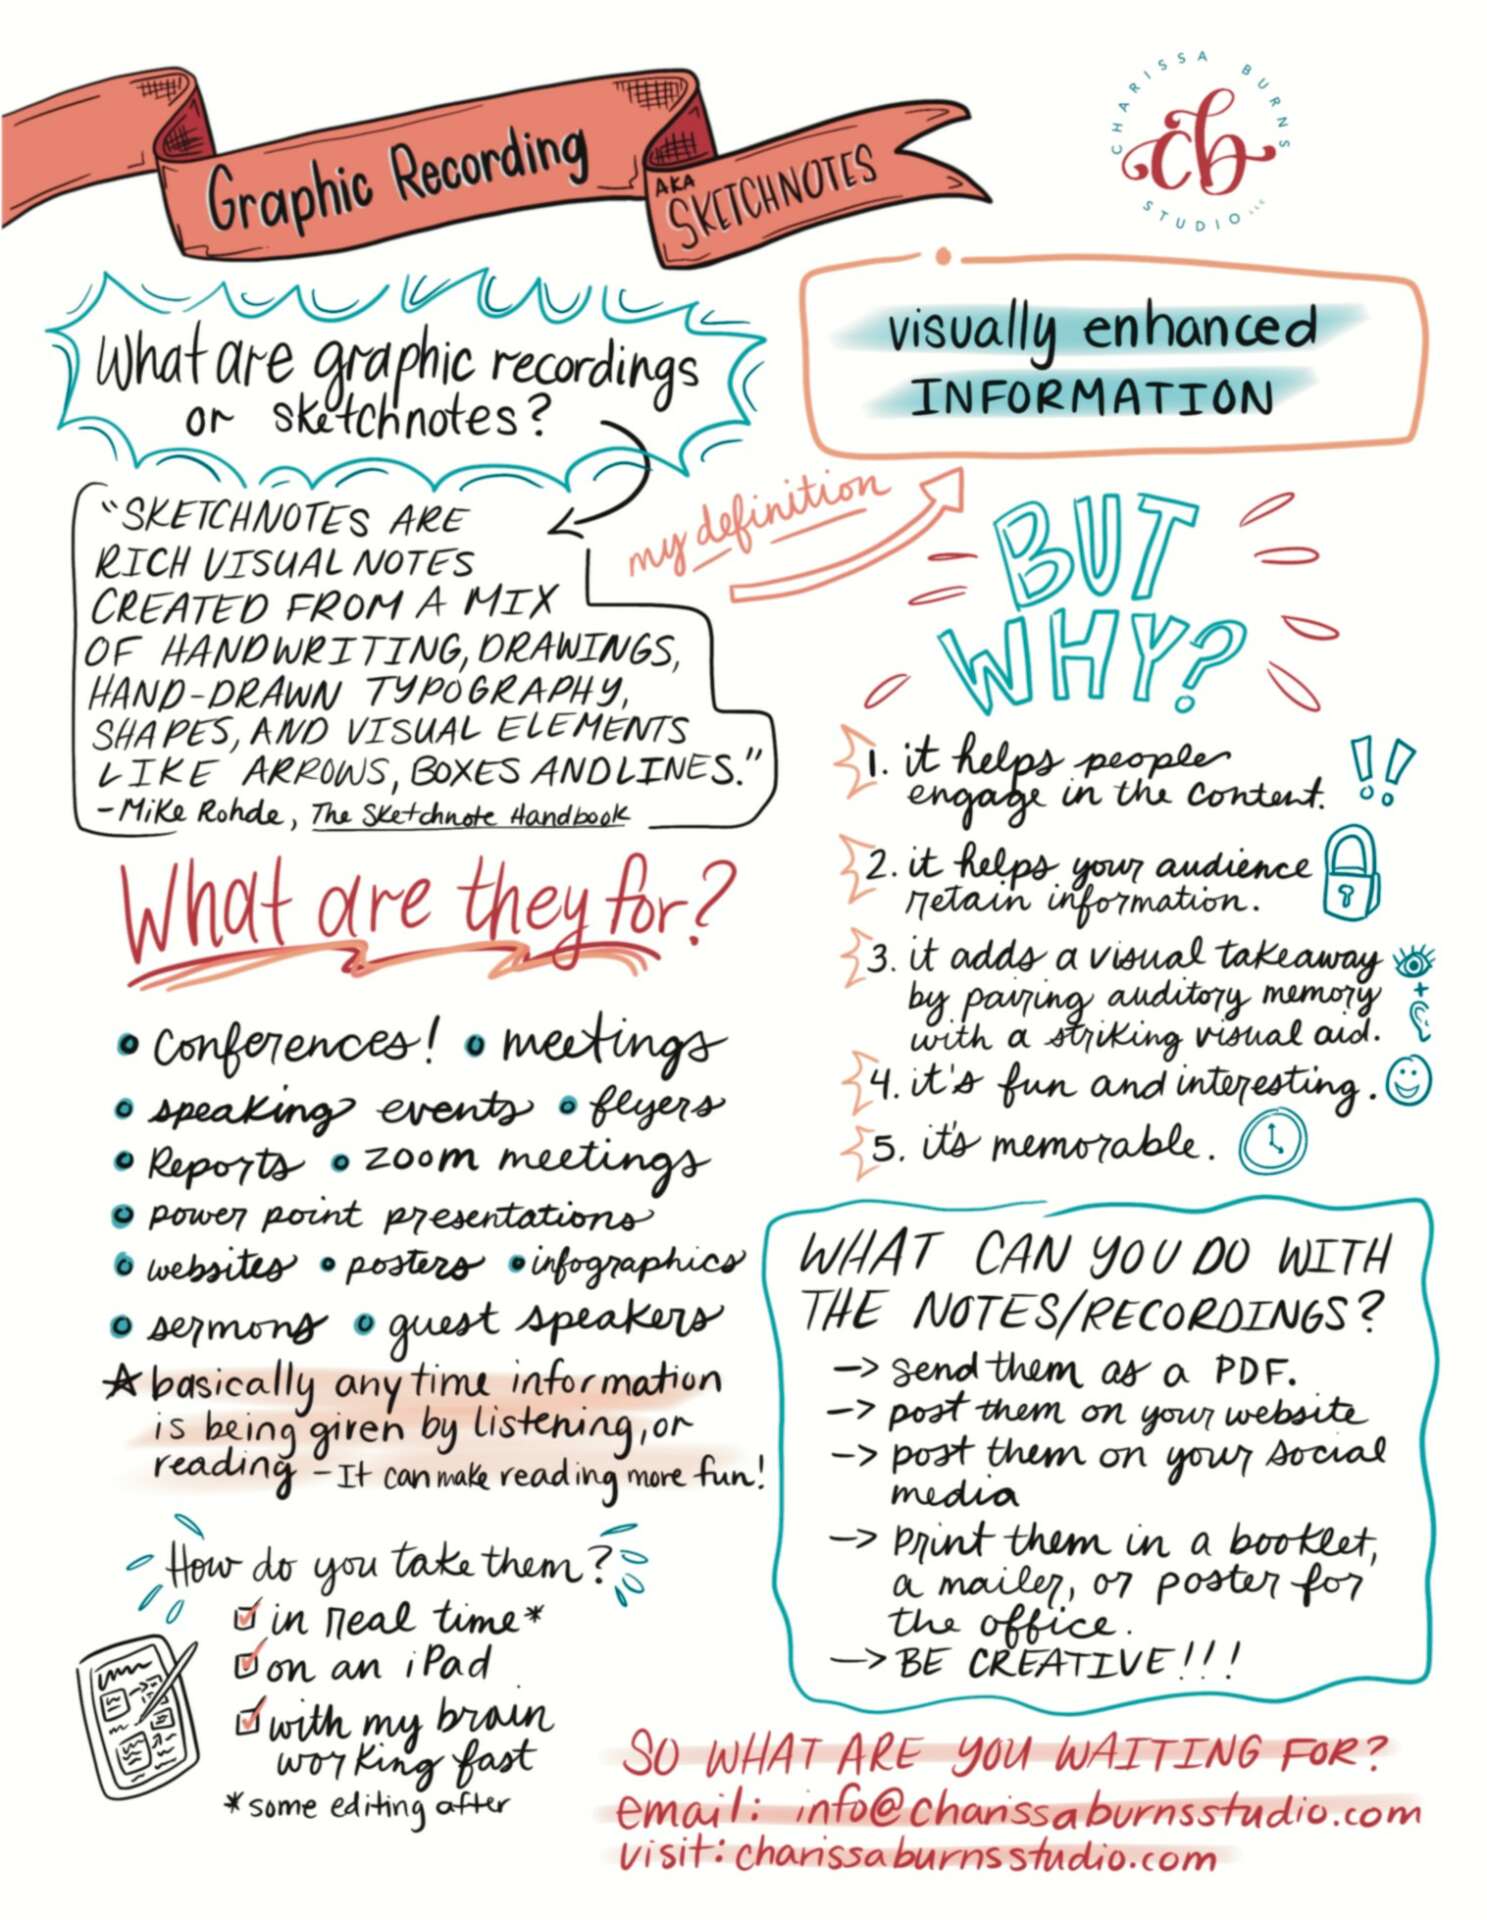 Graphic Recording
AKA
SKETCHNOTES
CHARISSA BURNS
cb
STUDIO LLC
What are graphic recordings
or sketchnotes?
"SKETCHNOTES ARE
RICH VISUAL NOTES
CREATED FROM A MIX
OF HANDWRITING, DRAWINGS,
HAND-DRAWN TYPOGRAPHY,
SHAPES, AND VISUAL ELEMENTS
LIKE ARROWS, BOXES AND LINES."
- Mike Rohde, The Sketchnote Handbook
my definition
visually enhanced
INFORMATION
BUT
WHY?
1. it helps people
engage in the content.
!!
2. it helps your audience
retain information.
3. it adds a visual takeaway
by pairing auditory memory
with a striking visual aid.
+
4. it's fun and interesting.
5. it's memorable.
What are they for?
• Conferences! • meetings
• speaking events • flyers
• Reports • zoom meetings
• power point presentations
• websites • posters • infographics
• sermons • guest speakers
☆ basically any time information
is being given by listening, or
reading - It can make reading more fun!
How do you take them?
☑ in real time*
☑ on an iPad
☑ with my brain
working fast
*some editing after
WHAT CAN YOU DO WITH
THE NOTES/RECORDINGS?
→ send them as a PDF.
→ post them on your website
→ post them on your social
media
→ print them in a booklet,
a mailer, or poster for
the office.
→ BE CREATIVE!!!
SO WHAT ARE YOU WAITING FOR?
email: info@charissaburnsstudio.com
visit: charissaburnsstudio.com